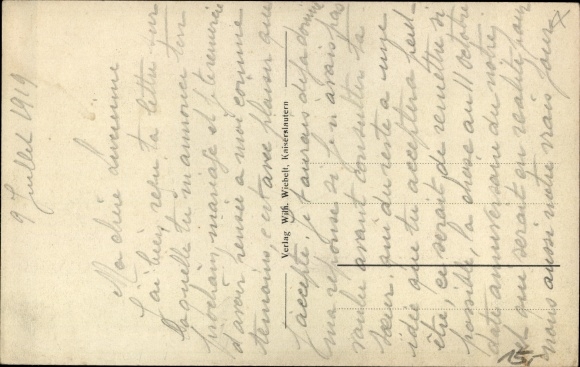 9 Juillet 1919
Ma chère Lucienne
J'ai bien reçu ta lettre sur
laquelle tu m'annonce ton
prochain mariage et je te remercie
d'avoir pensée a moi comme
temoins, c'est avec plaisir que
j'accepte. Je t'aurais deja donné
ma réponse si je n'avais pas
voulu avant consulter ta
sœur qui du reste a une
idée que tu acceptera peut-
être, ce serait de remettre si
possible, la chose au 11 octobre
date anniversaire du notre,
et qui serait en realité pour
nous aussi notre vrais jour
Verlag Wilh. Wiebelt, Kaiserslautern
15,-